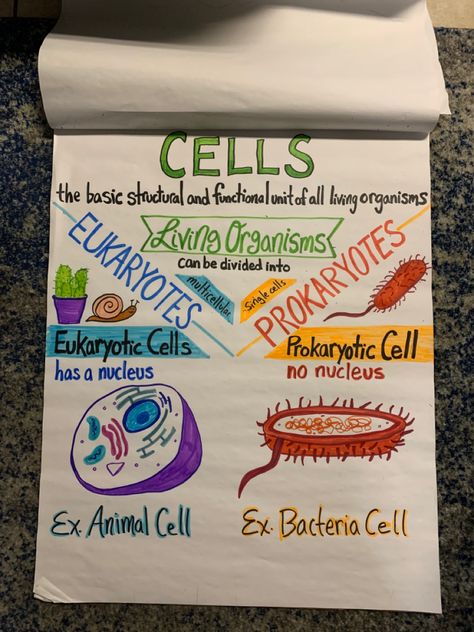 CELLS
the basic structural and functional unit of all living organisms
Living Organisms
can be divided into
EUKARYOTES
multicellular
single cells
PROKARYOTES
Eukaryotic Cells
has a nucleus
Prokaryotic Cell
no nucleus
Ex. Animal Cell
Ex. Bacteria Cell